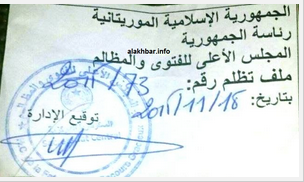 الجمهورية الإسلامية الموريتانية
رئاسة الجمهورية
alakhbar.info
المجلس الأعلى للفتوى والمظالم
ملف تظلم رقم: 2015/73
بتاريخ: 2015/11/18
توقيع الإدارة